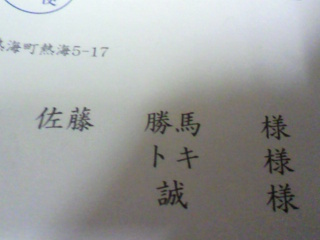 熱海町熱海5-17
佐藤 勝馬 様
トキ 様
誠 様